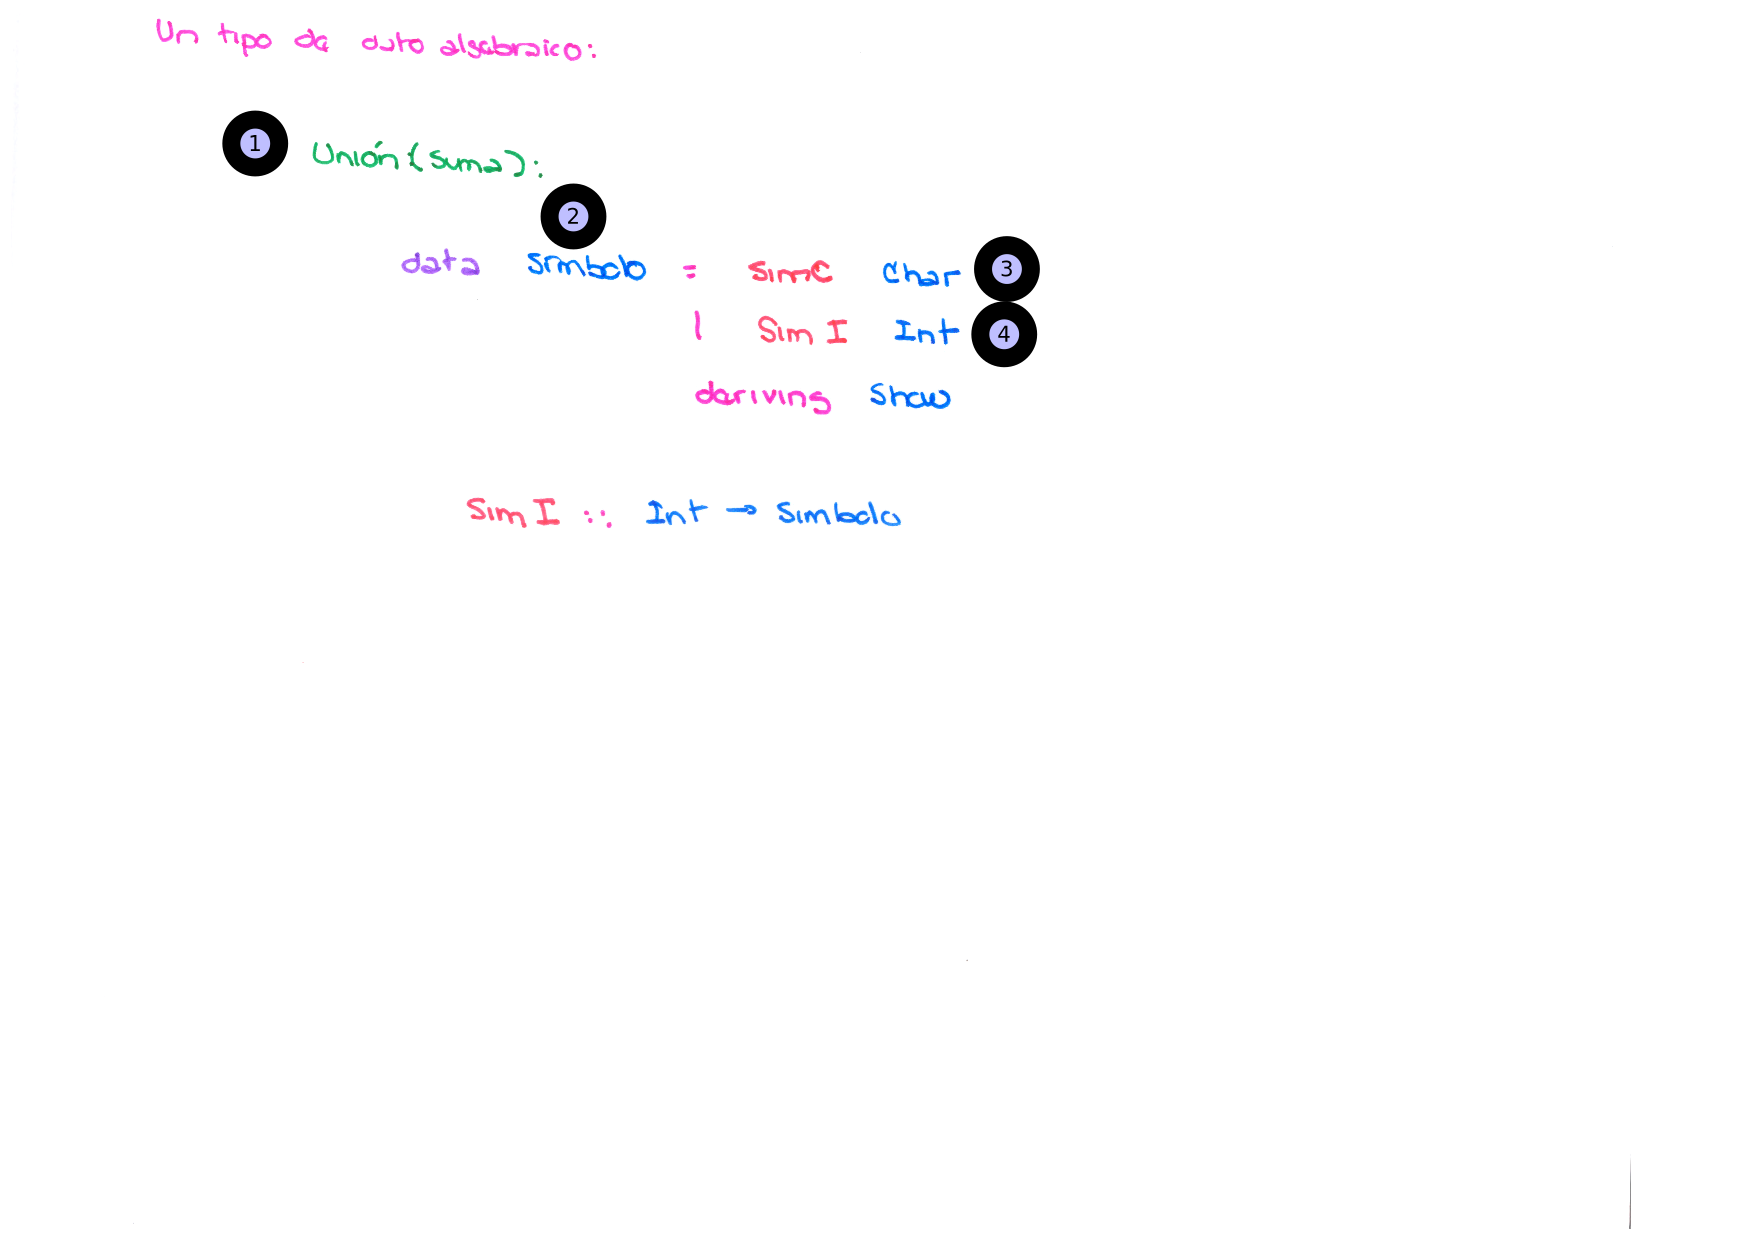 Un tipo de dato algebraico:
1 Unión (suma):
2
data Simbolo = SimC Char 3
| SimI Int 4
deriving Show
SimI :: Int → Simbolo